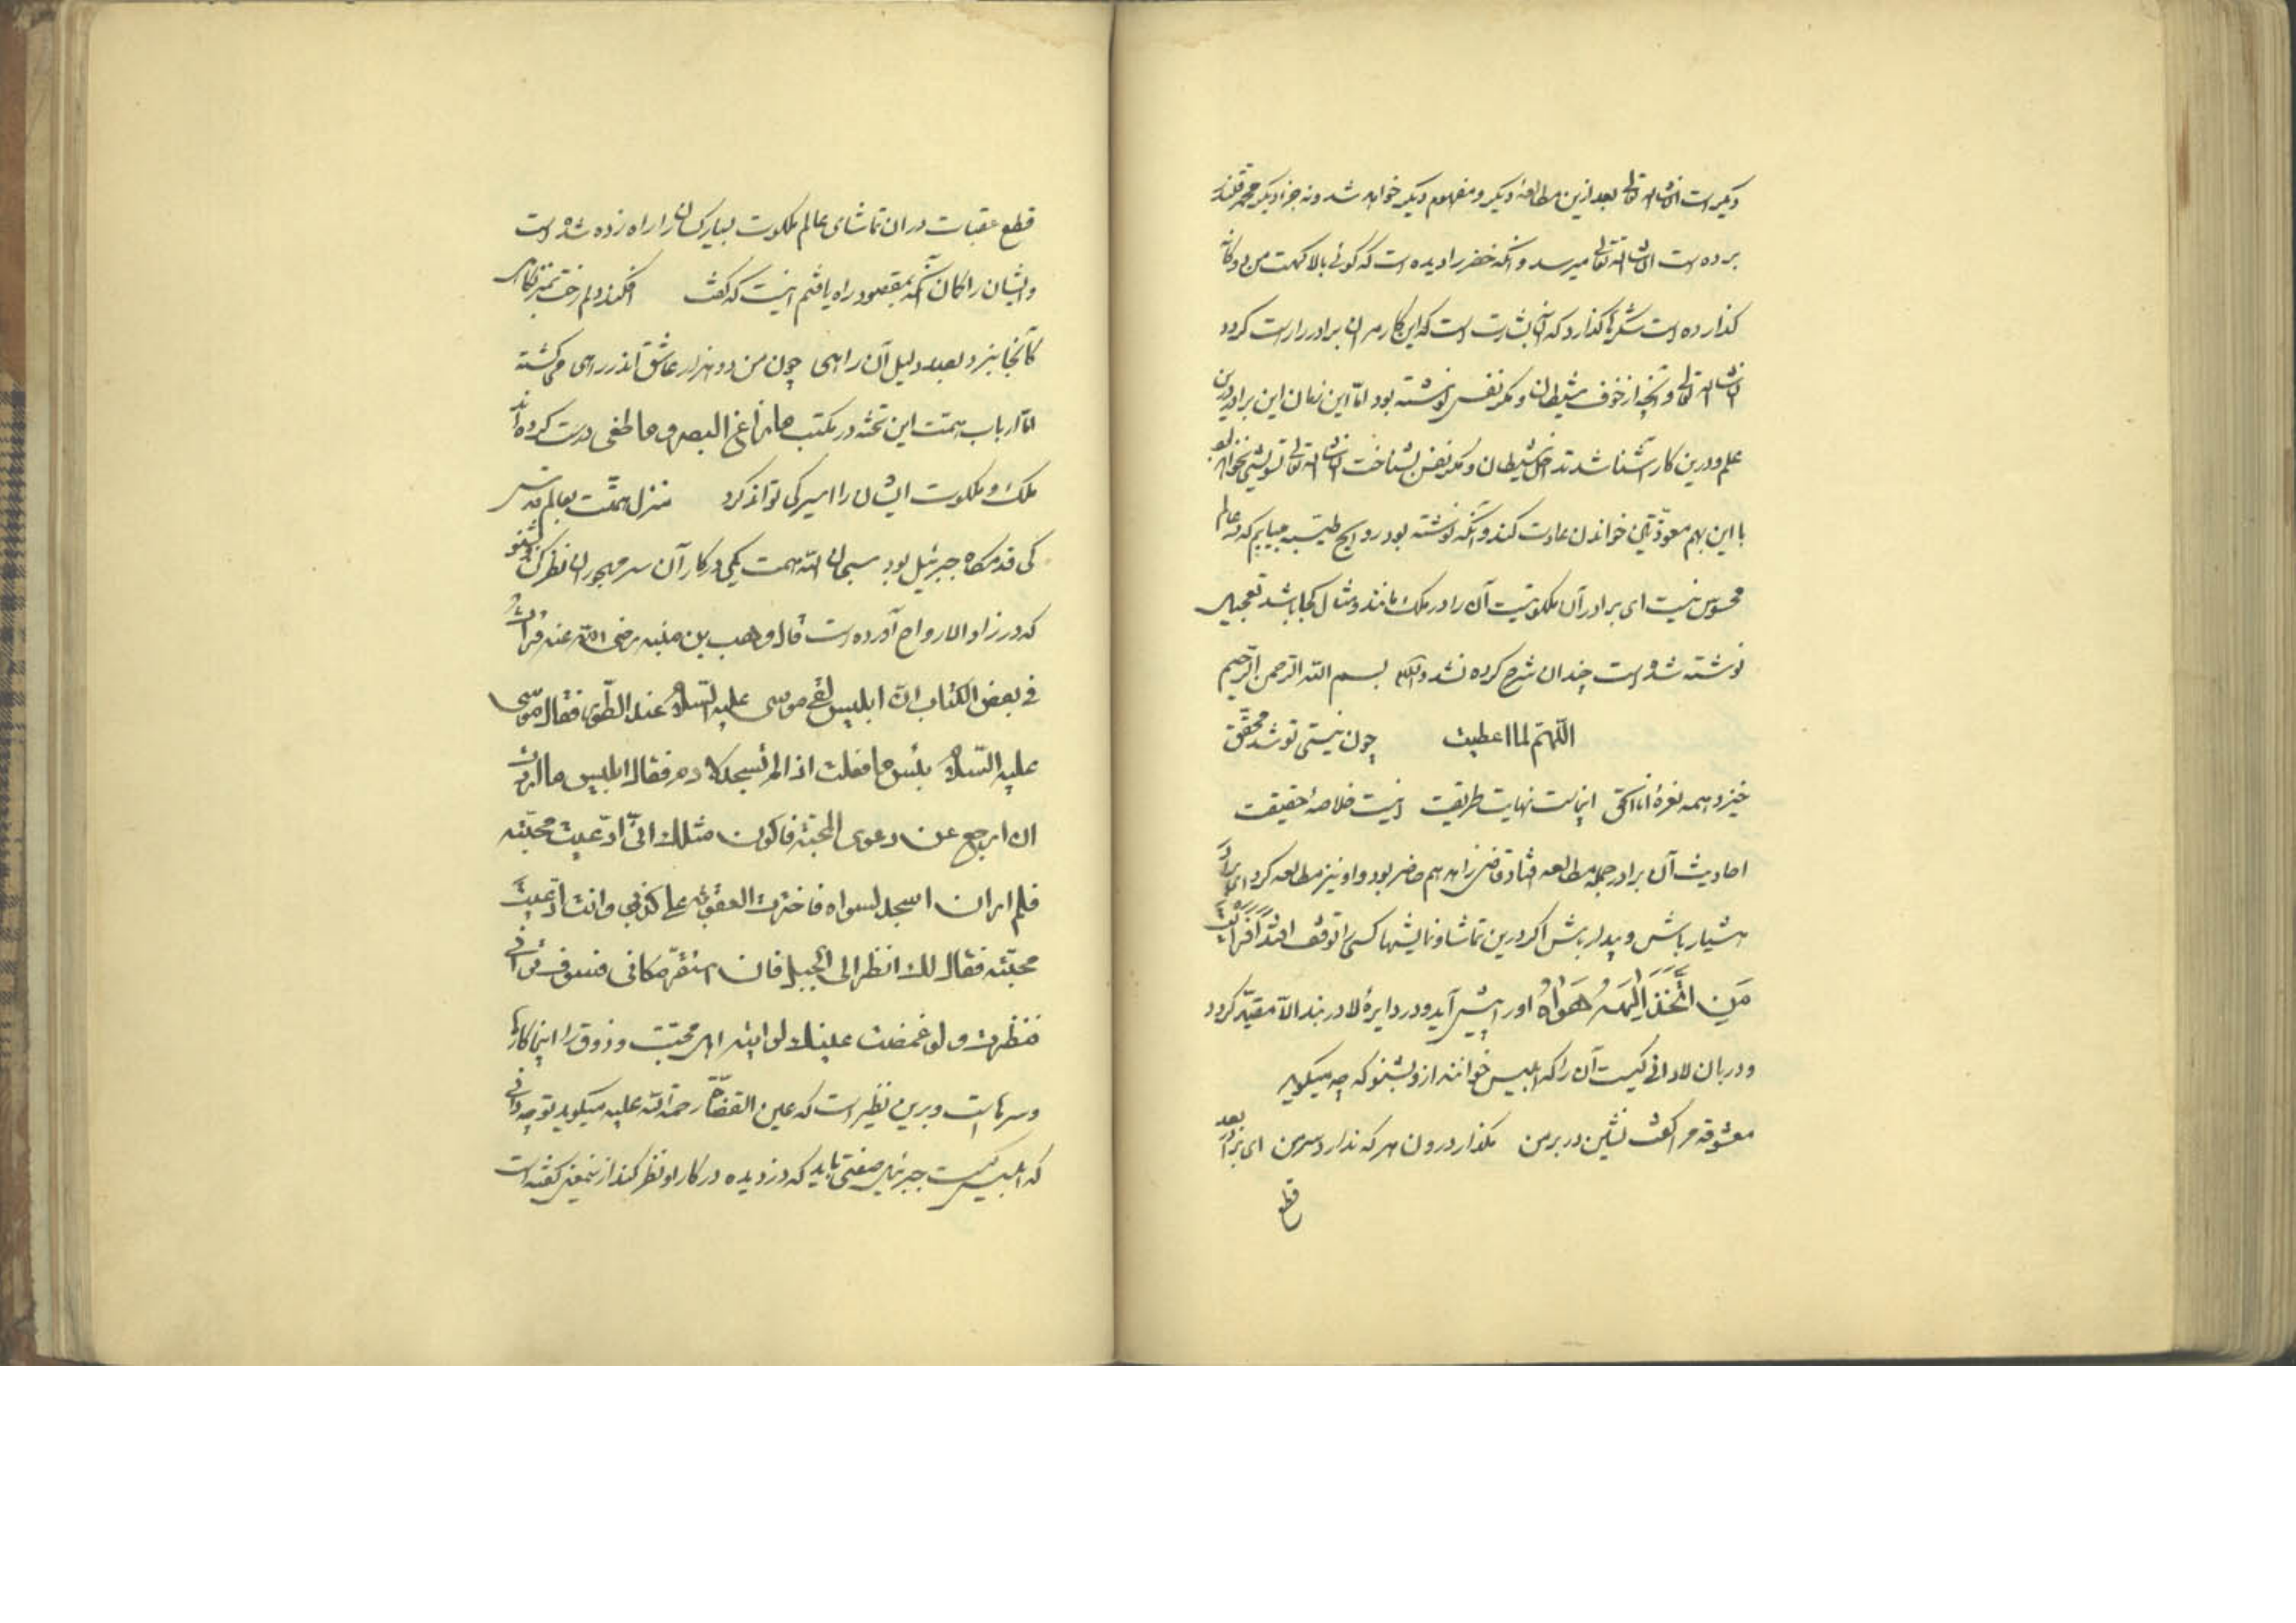 دیگر است ان شاء الله تعالی بعد ازین مطالعهٔ دیگر و مفهوم دیگر خواهد شد ونه جز دیگر
برده است ان شاء الله تعالی میرسد و آنکه خضر را دیده است که کوئی بالا کهت من دوگانه
کذارده است شکرها کذارد که این بشارت است که این کار مر ان برادر را راست کردد
ان شاء الله تعالی و آنچه از خوف شیطان و مکر نفس نوشته بود اما این زمان این برادر درین
علم و درین کار آشنا شد تدخل شیطان و مکر نفس بشناخت ان شاء الله تعالی تشویشی نخواهد بود
با این بهم معوذتین خواندن عادت کند و آنکه نوشته بود روایح طیبه مییابم که در عالم
محسوس نیست ای برادر آن ملکوتیت آن را در ملک مانند و مثال کجا باشد تعجیل
نوشته شده است چندان شرح کرده نشد والسلام بسم الله الرحمن الرحیم
اللهم لما اعطیت چون نیستی تو شد محقق
خیزد همه نعرهٔ انا الحق اینست نهایت طریقت اینست خلاصهٔ حقیقت
احادیث آن برادر جمله مطالعه افتاد قاضی زاهد هم حاضر بود و او نیز مطالعه کرد ای برادر
هشیار باش و بیدار باش اکر درین تماشا و نمایشها کسی را توقف افتد أَفَرَأَيْتَ
مَنِ اتَّخَذَ إِلٰهَهُ هَوَاهُ او را پیش آید و در دایرهٔ لا در بند الا مقید کردد
و دربان لا دانی کیست آن را که ابلیس خوانند ازو بشنو که چه میکوید
معشوقه مرا کفت نشین در بر من مکذار درون هر که ندارد سر من ای برادر بعد
قطع
قطع عقبات دران تماشای عالم ملکوت بسیار کسان را راه زده شده است
و ایشان را کمان آنکه بمقصود راه یافتیم اینست که کفت افکند دلم رخت بمنزلکاهی
کانجا نبرد بصد دلیل آن راهی چون من دو هزار عاشق اندر راهی می کشته
اما ارباب همت این تخته در مکتب ما زاغ البصر و ما طغی درست کرده اند
ملک و ملکوت ایشان را اسیر کی تواند کرد منزل همت بعالم قدس
کی قدمکاه جبرئیل بود سبحان الله همت یکی در کار آن سر مهجوران نظر کن و بشنو
که در زاد الارواح آورده است قال وهب بن منبه رضی الله عنه قرأت
فی بعض الکتاب ان ابلیس لقی موسی علیه السلام عند الطور فقال موسی
علیه السلام بئس ما فعلت اذ لم تسجد لادم فقال ابلیس ما اردت
ان ارجع عن دعوی المحبة فاکون مثلک انی ادعیت محبته
فلم ار ان اسجد لسواه فاخترت العقوبة علی کذبی وانت ادعیت
محبته فقال لک انظر الی الجبل فان استقر مکانه فسوف ترانی
فنظرت ولو غمضت عینک لرایته اهل محبت و ذوق را اینجا کارها
و سرهاست و برین نظیر است که عین القضاة رحمة الله علیه میکوید تو چه دانی
که ابلیس کیست جبرئیل صفتی باید که دزدیده در کار او نظر کند از ینمعنی کفته است